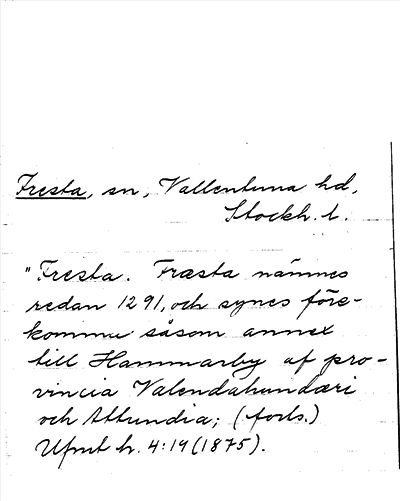 Fresta, sn, Vallentuna hd,
Stockh. l.
"Fresta. Fræsta nämnes
redan 1291, och synes före-
komma såsom annex
till Hammarby af pro-
vincia Valendahundæri
och Attundia; (forts.)
Upmt h. 4:19 (1875).